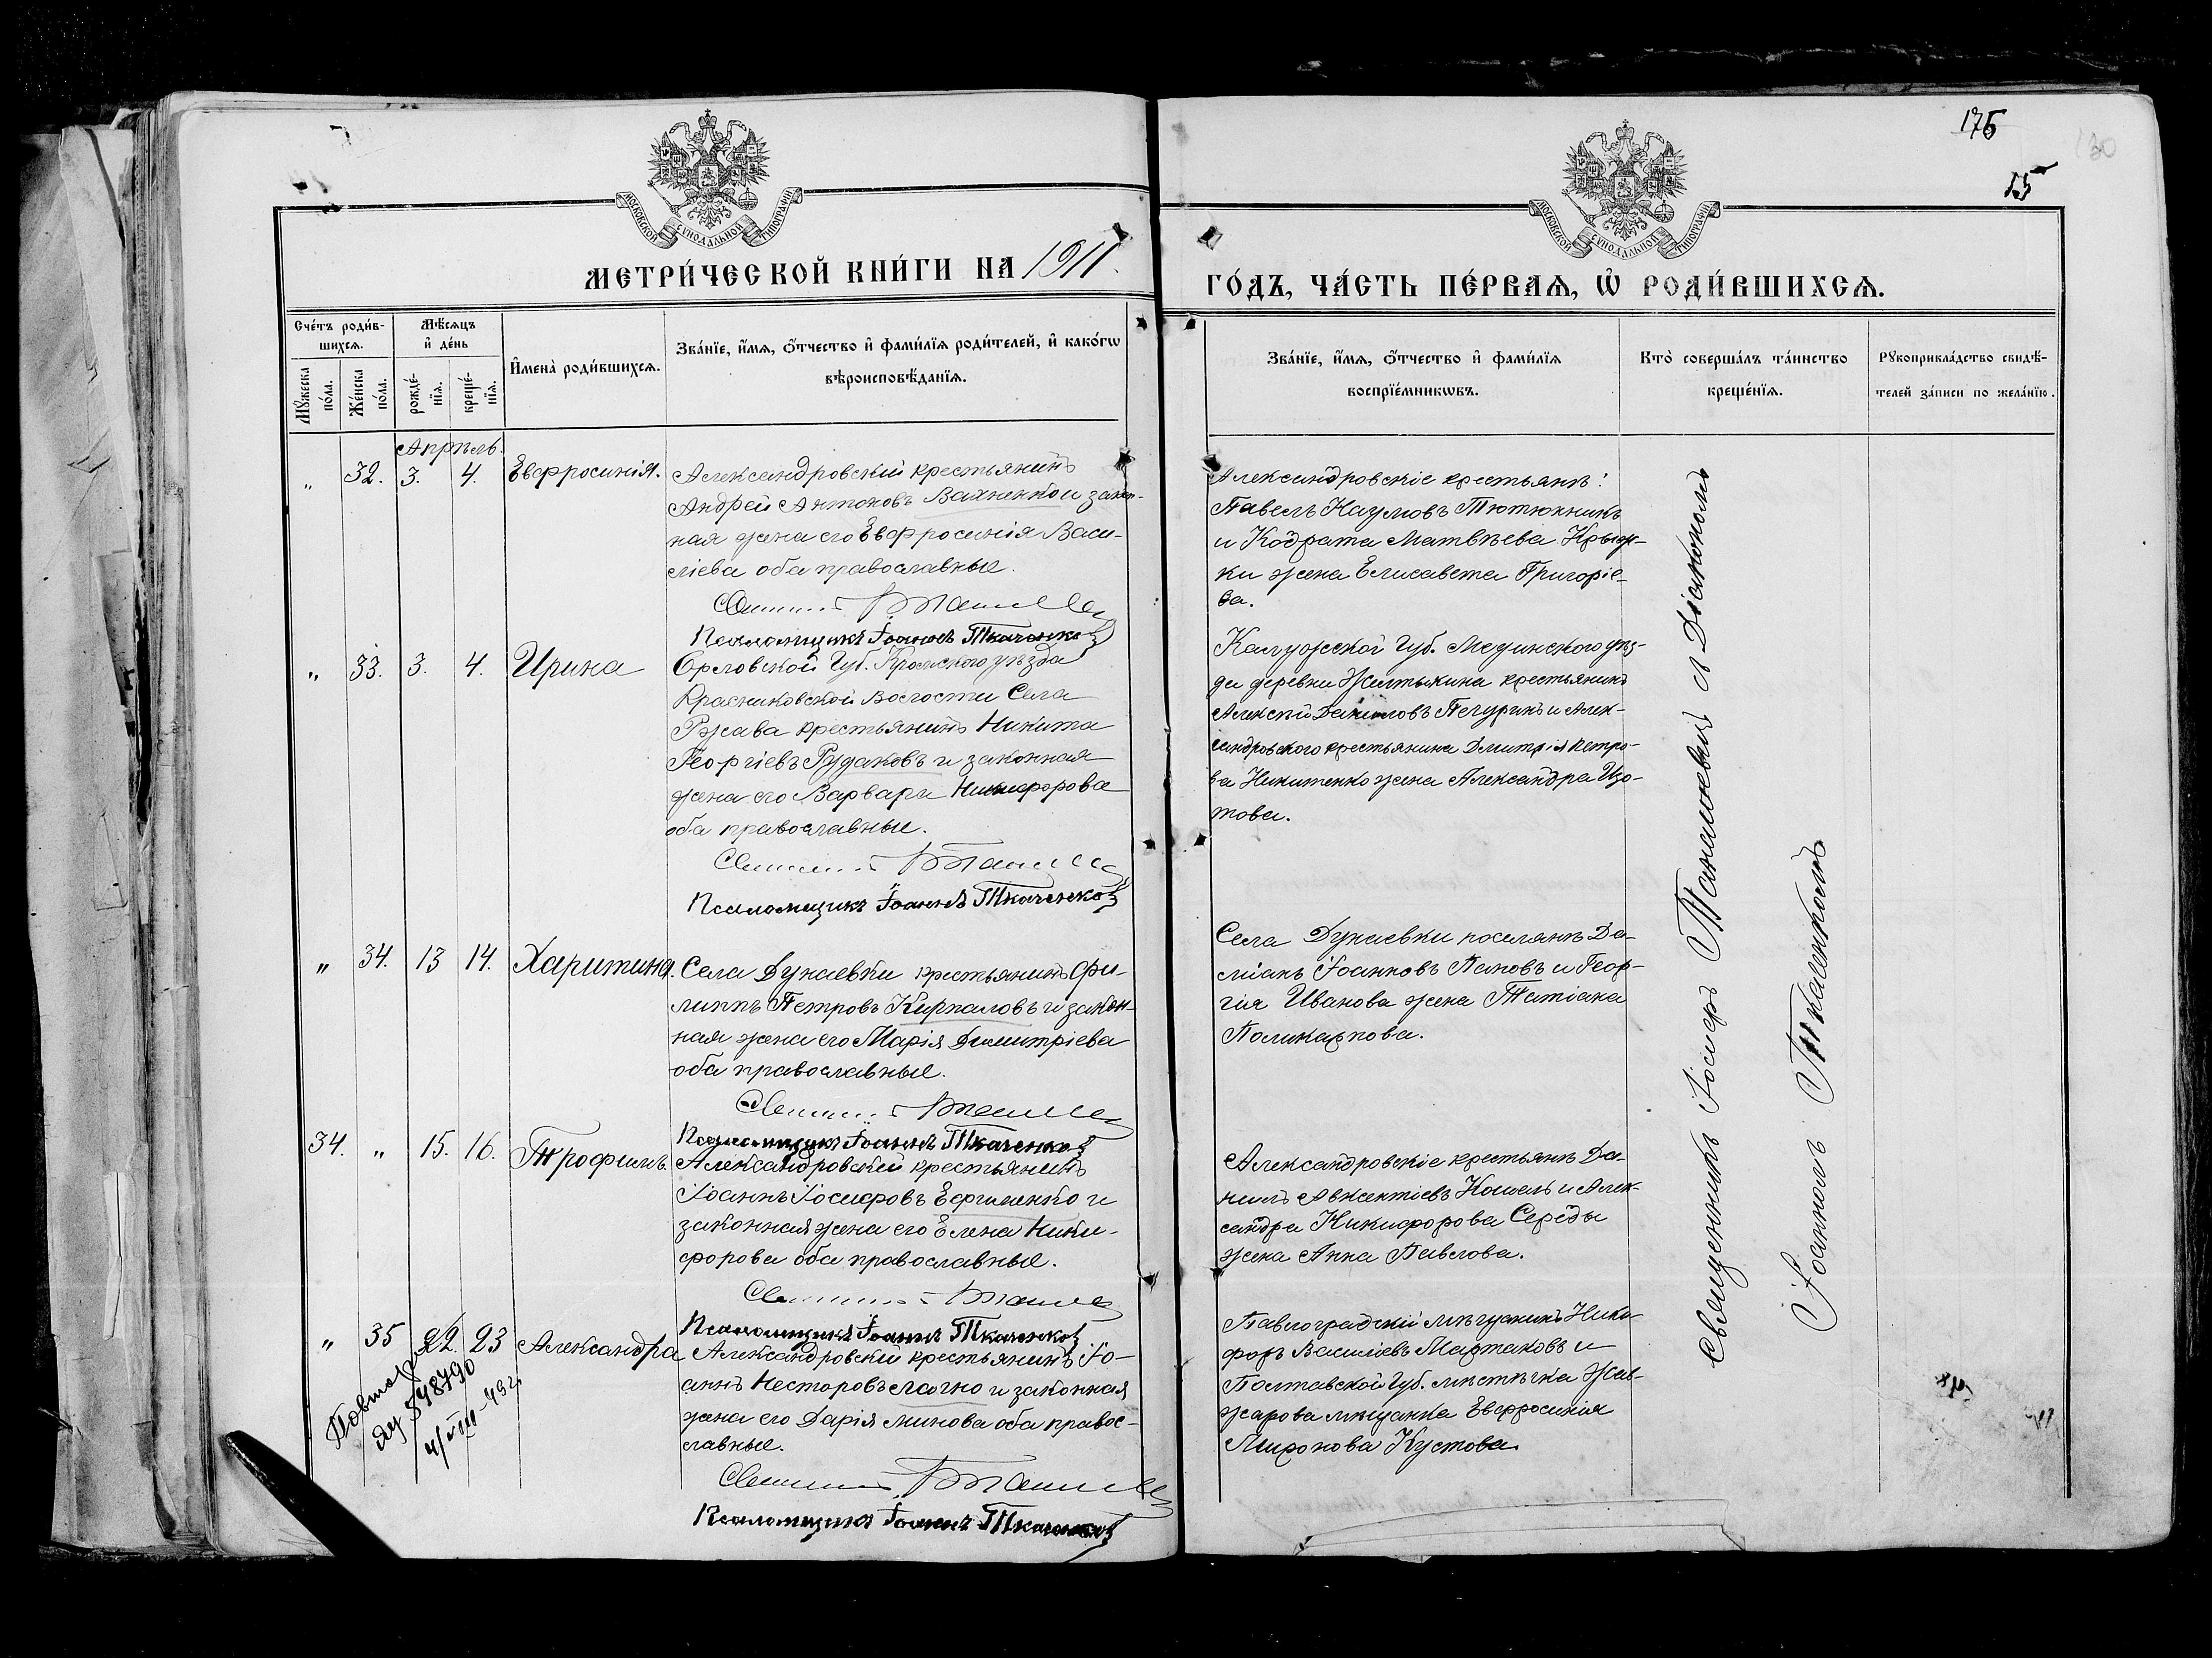 175
130
55
МОСКОВСКОЙ СУНОДАЛЬНОЙ ТИПОГРАФІИ
МОСКОВСКОЙ СУНОДАЛЬНОЙ ТИПОГРАФІИ
МЕТРИ́ЧЕСКОЙ КНИ́ГИ НА 1911.
ГО́ДЪ, ЧА́СТЬ ПЕ́РВАѦ, Ѽ РОДИ́ВШИХСѦ.
Сче́тъ роди́в-
шихсѧ.
Мѣ́сѧцъ
и҆ де́нь
И҆мена̀ роди́вшихсѧ.
Зва́нїе, и҆́мѧ, ѻ҆́тчество и҆ фами́лїѧ роди́телей, и҆ како́гѡ
вѣроисповѣ́данїѧ.
Мꙋ́жеска
по́ла.
Же́нска
по́ла.
рожде́-
нїѧ.
креще́-
нїѧ.
Зва́нїе, и҆́мѧ, ѻ҆́тчество и҆ фами́лїѧ
воспрїе́мникѡвъ.
Кто̀ соверша́лъ та́инство
креще́нїѧ.
Рꙋкоприкла́дство свидѣ́-
телей за́писи по жела́нїю.
Апрѣль.
„ 32. 3. 4. Евфросинія.
Александровскій крестьянинъ
Андрей Антоновъ Вахненко и закон-
ная жена его Евфросинія Васи-
ліева оба православные.
Псаломщикъ Іоаннъ Ткаченко
Александровскіе крестьяне:
Павелъ Наумовъ Тютюнникъ
и Кодрата Матвѣева Крыж-
ки жена Елисавета Григоріе-
ва.
„ 33. 3. 4. Ирина
Орловской Губ. Кромского уѣзда
Красниковской Волости Села
Ржава крестьянинъ Никита
Георгіевъ Рудаковъ и законная
жена его Варвара Никифорова
оба православные.
Псаломщикъ Іоаннъ Ткаченко
Калужской Губ. Медынского уѣз-
да деревни Желтыкина крестьянинъ
Алексѣй Даниловъ Печуринъ и Алек-
сандровского крестьянина Дмитрія Петро-
ва Никитенко жена Александра Изо-
това.
„ 34. 13 14. Харитина.
Села Дунаевки крестьянинъ Фи-
липпъ Петровъ Кирпаловъ и закон-
ная жена его Марія Димитріева
оба православные.
Псаломщикъ Іоаннъ Ткаченко
Села Дунаевки поселянъ Да-
міанъ Іоанновъ Пановъ и Геор-
гія Иванова жена Татіана
Поликарпова.
34. „ 15. 16. Трофимъ.
Александровскій крестьянинъ
Іоаннъ Іосифовъ Ефименко и
законная жена его Елена Ники-
форова оба православные.
Псаломщикъ Іоаннъ Ткаченко
Александровскіе крестьяне Да-
ниилъ Авксентіевъ Кошель и Алек-
сандра Никифорова Середы
жена Анна Павлова.
„ 35 22. 23 Александра
Александровскій крестьянинъ Іо-
аннъ Несторовъ Лагно и законная
жена его Дарія Минова оба право-
славные.
Псаломщикъ Іоаннъ Ткаченко
Павлоградскій мѣщанинъ Ники-
форъ Василіевъ Мартаковъ и
Полтавской Губ. мѣстечка Кле-
жарова мѣщанка Евфросинія
Миронова Кустова.
Священникъ Іосифъ Танашевичъ с Діакономъ
Іоанномъ Ткаченкомъ